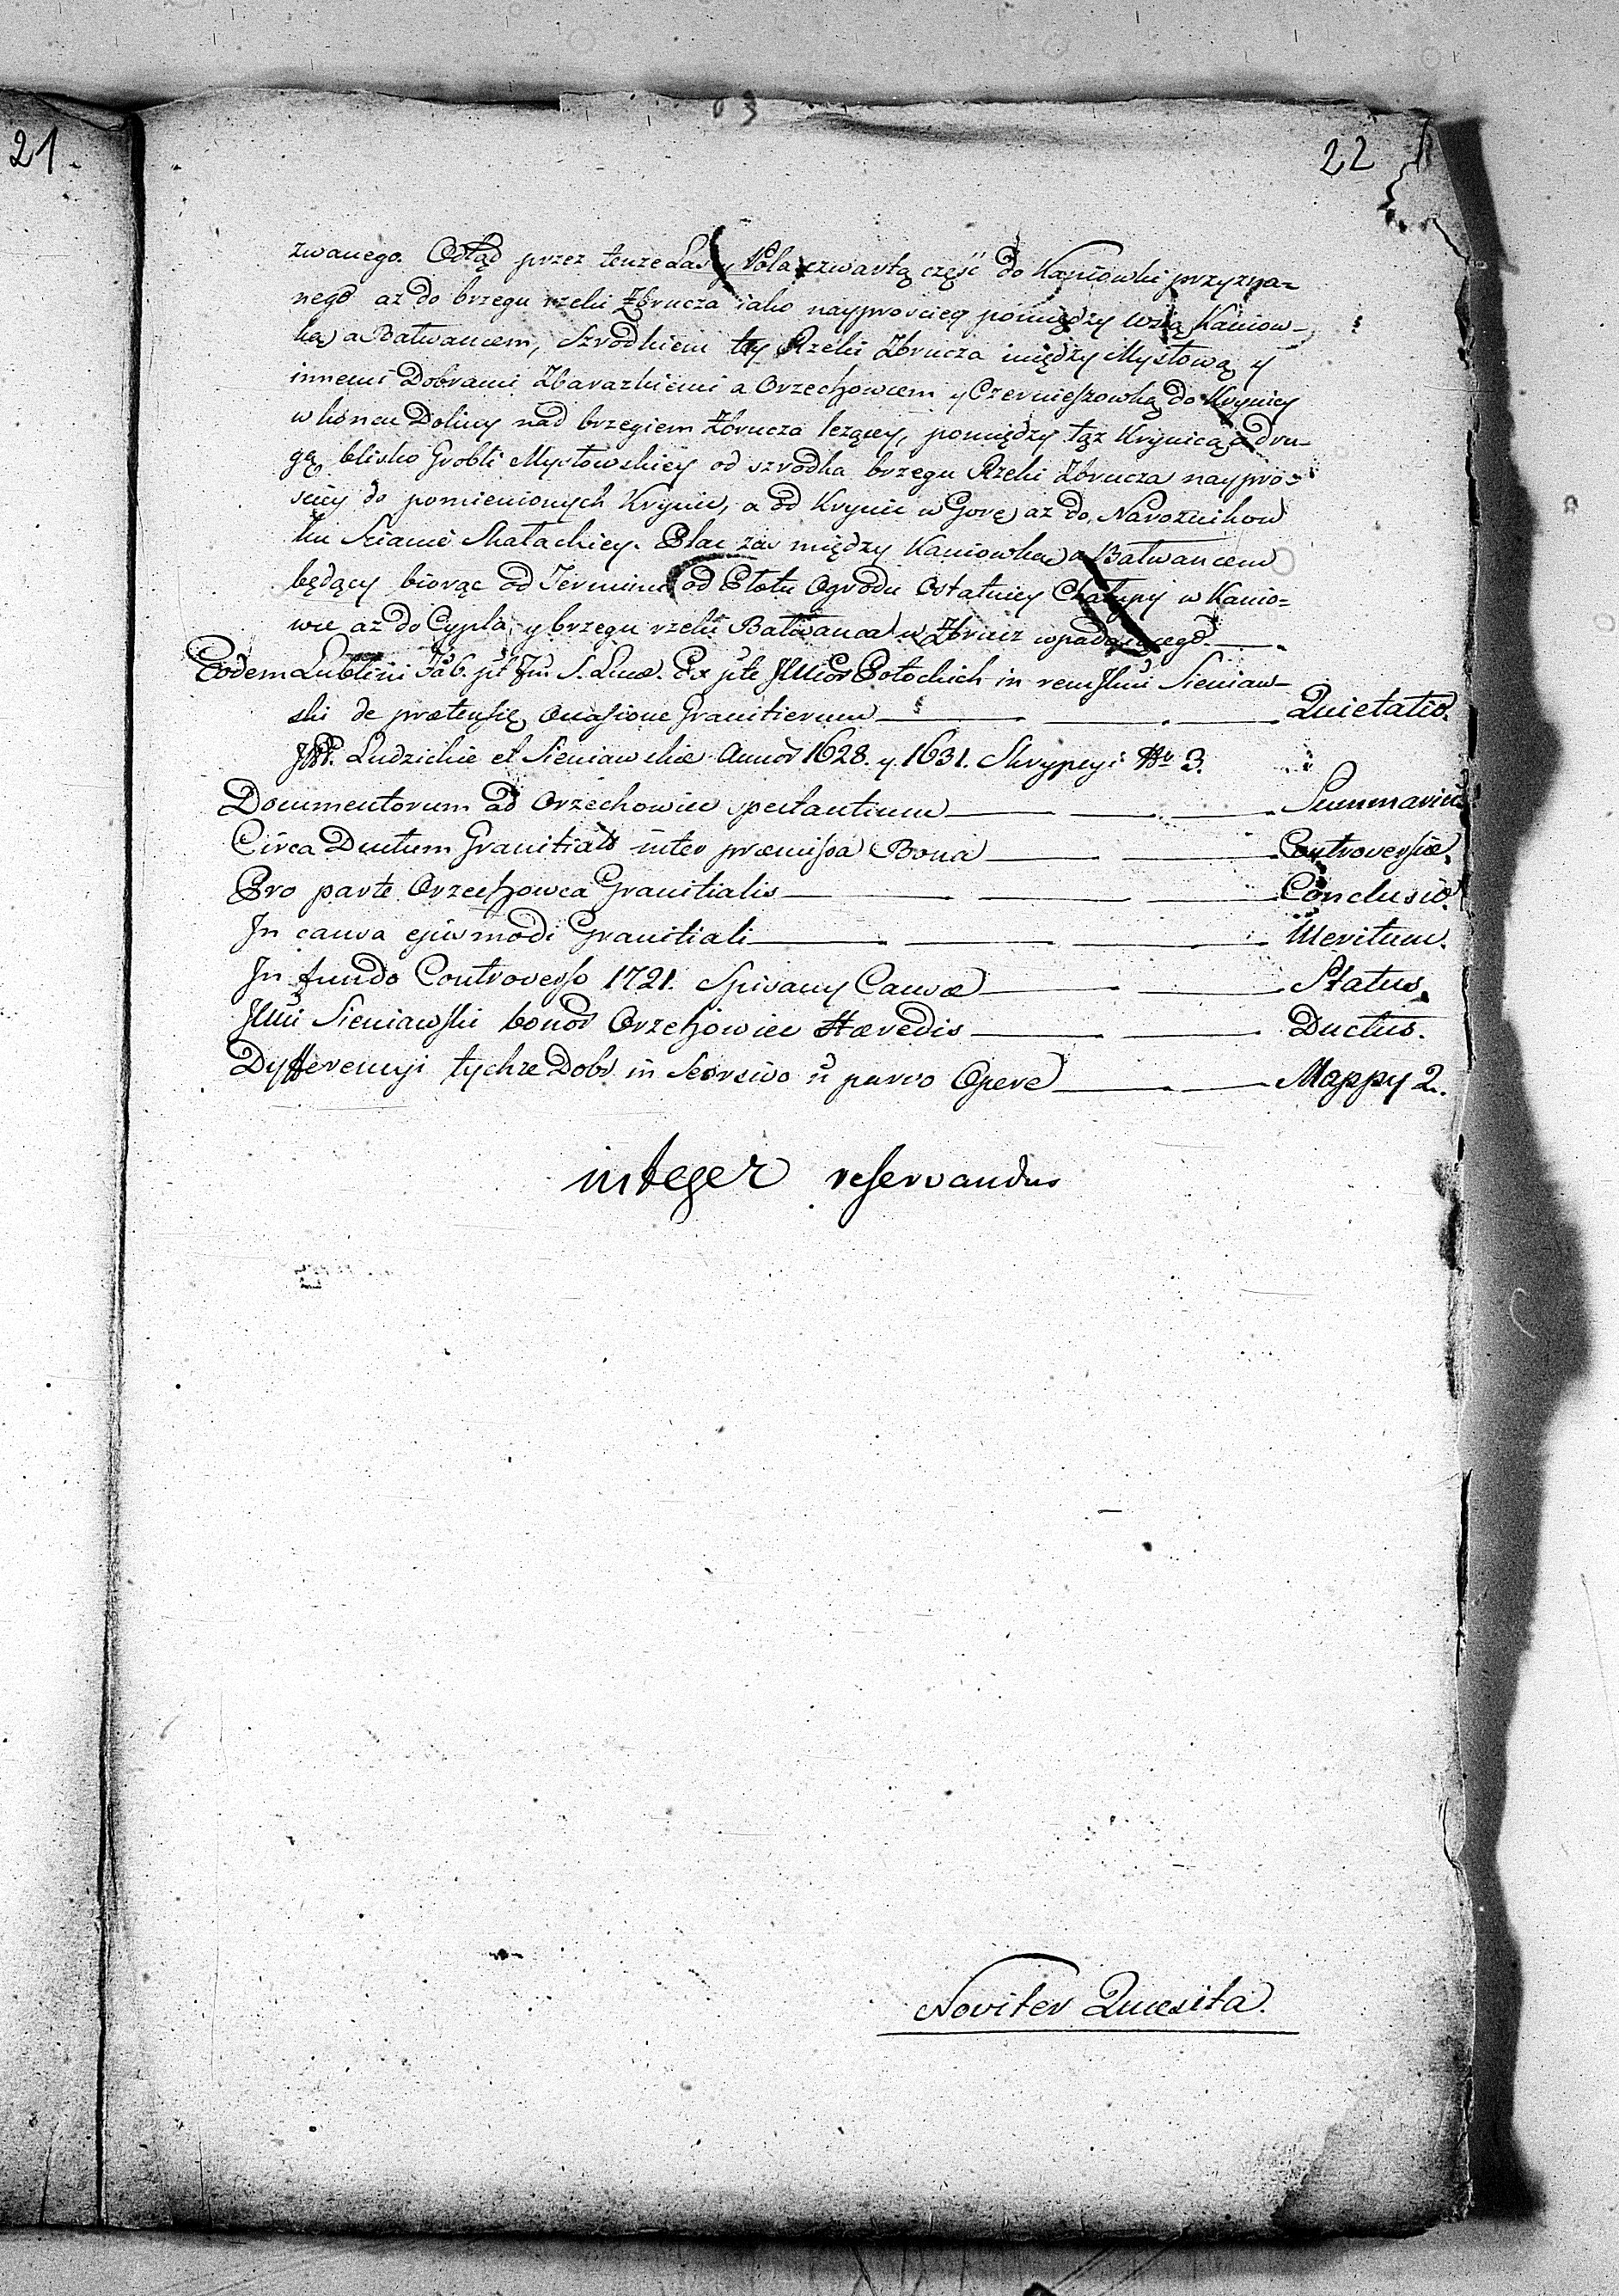 21.
22
zwanego. Odtąd przez tenze Las y Pola czwartą część do Kaniowki przyzna=
nego az do brzegu rzeki Zbrucza iako nayprosciey pomiędzy wsią Kaniow-
ką a Batwancem, Szrodkiem tey Rzeki Zbrucza między Mysłową y
innemi Dobrami Zbarazkiemi a Orzechowcem y Czernieszowką do Krynicy
w koncu Doliny nad brzegiem Zbrucza lezącey, pomiędzy tąz Krynicą a dru-
gą blisko Grobli Mysłowskiey od szrodka brzegu Rzeki Zbrucza naypro=
sciey do pomienionych Krynic, a od Krynic w Gorę az do Narożnikow
ku Scianie Skałackiey. Plac zas między Kaniowką a Batwancem
będący biorąc od Terminu od Płotu Ogrodu Ostatniey Chałupy w Kanio=
wce az do Cypla y brzegu rzeki Batwanca w Zbrucz wpadaiącego
Eodem Lublini Sab. S. Lucæ. Ex pte Potockich in rem Sieniaw-
ski de prætensię occasione Granitierum Quietatio.
Ludzickie et Sieniawskie Annor 1628. y 1631. Skrypcyi Nr 3.
Documentorum ad Orzechowiec spectantium Summariu
Circa Ductum Granitialē inter præmissa Bona Controversiæ.
Pro parte Orzechowca Granitialis Conclusio.
In causa ejusmodi Granitiali Meritum.
In fundo Controverso 1721. Spisany Causæ Status.
Illmi Sieniawski bonor Orzechowiec Hæredis Ductus.
Dyfferencyi tychze Dobr in Seorsivo et parvo Opere Mappy 2.
integer reservandus
Noviter Quæsita.